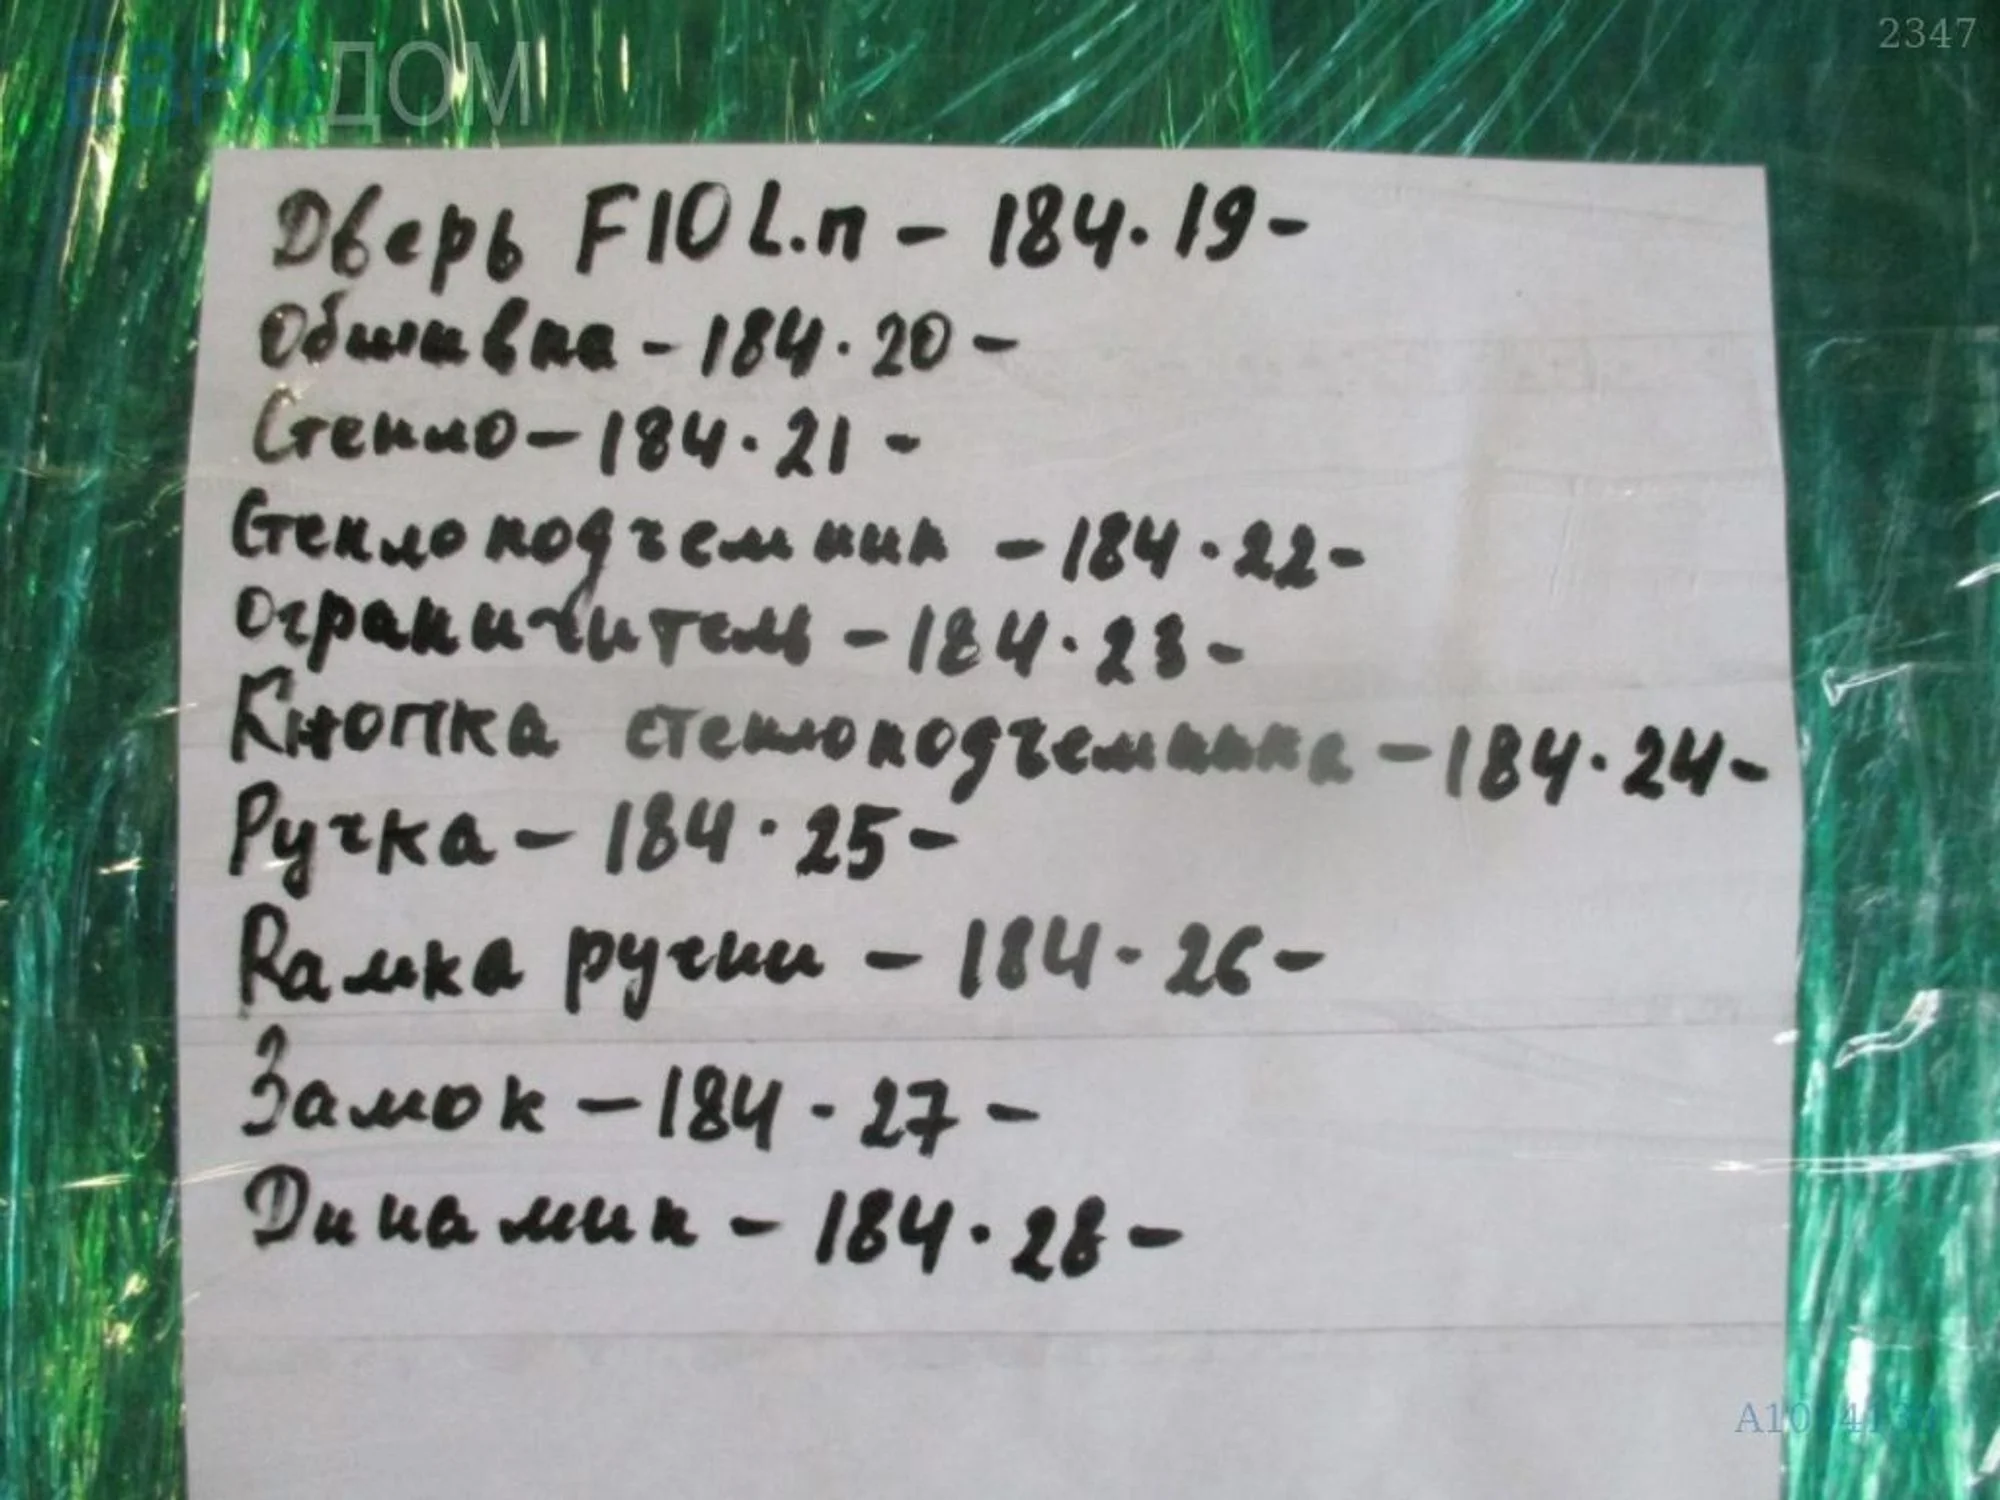 ЕВРОДОМ
2347
Дверь F10 L.п – 184. 19 –
Обшивка – 184. 20 –
Стекло – 184. 21 –
Стеклоподчемник – 184. 22 –
Ограничитель – 184. 23 –
Кнопка стеклоподчемника – 184. 24 –
Ручка – 184. 25 –
Рамка ручки – 184 - 26 –
Замок – 184 - 27 –
Динамик – 184. 28 –